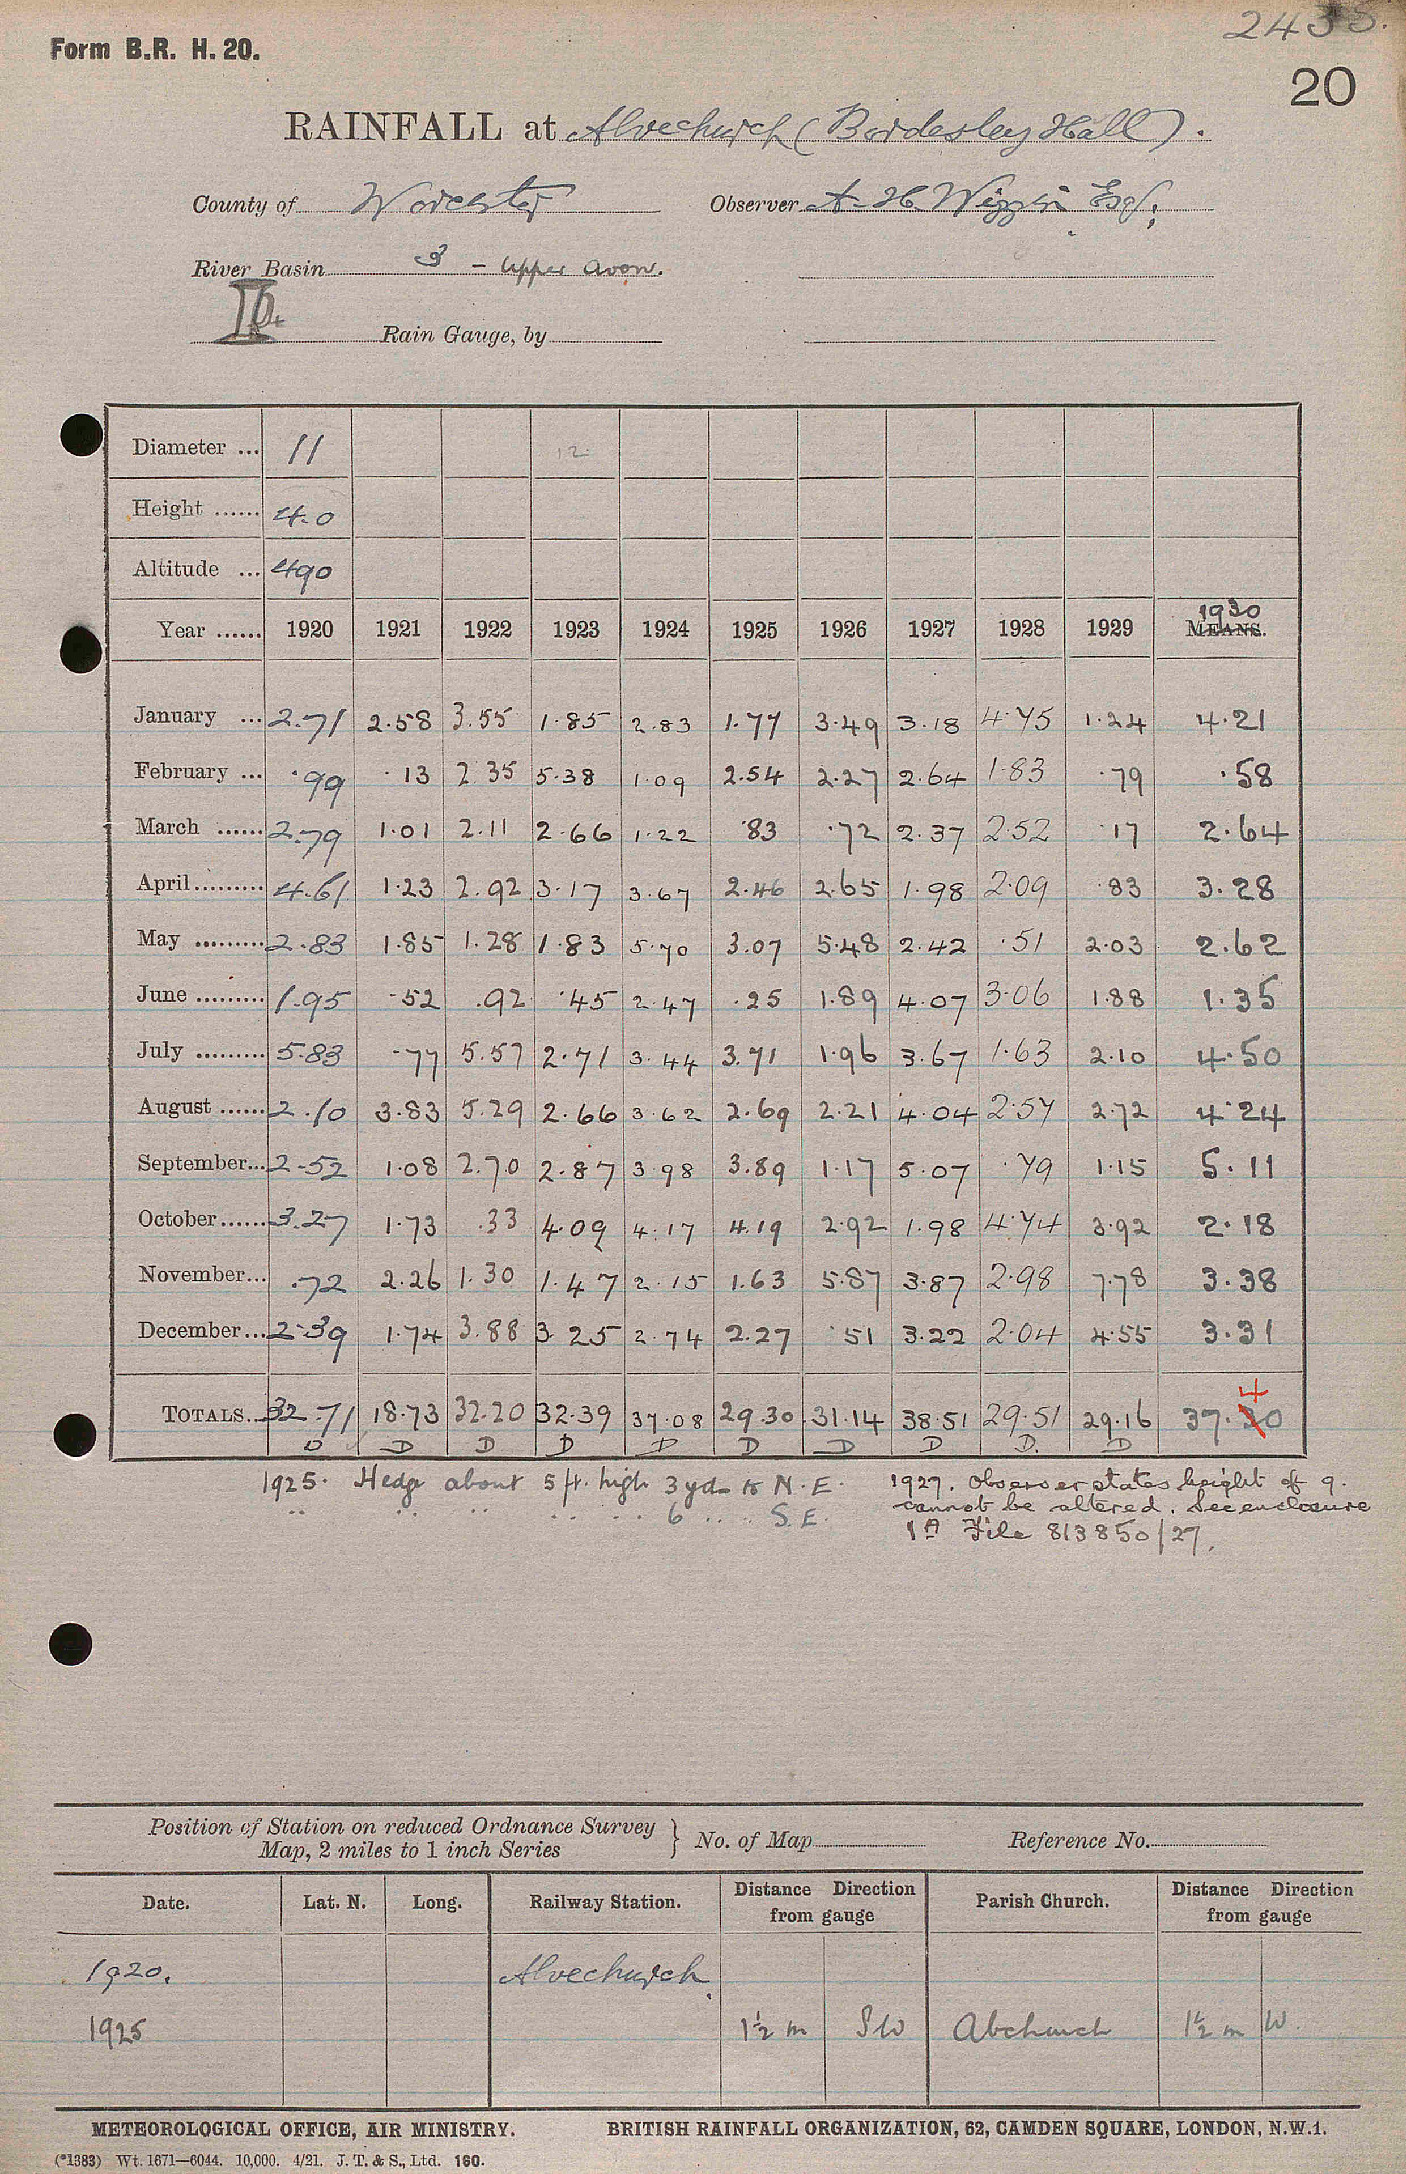 2435.
Form B.R. H. 20.
20
RAINFALL at Alvechurch (Bordesley Hall).
County of Worcester Observer A. H. Wiggin Esq.
River Basin 3 - Upper Avon.
Rain Gauge, by
Diameter ... 11 12
Height ...... 4.0
Altitude ... 490
1930
Year ...... 1920 1921 1922 1923 1924 1925 1926 1927 1928 1929 MEANS.
January ... 2.71 2.58 3.55 1.85 2.83 1.77 3.49 3.18 4.75 1.24 4.21
February ... .99 .13 2.35 5.38 1.09 2.54 2.27 2.64 1.83 .79 .58
March ...... 2.79 1.01 2.11 2.66 1.22 .83 .72 2.37 2.52 .17 2.64
April ......... 4.61 1.23 2.92 3.17 3.67 2.46 2.65 1.98 2.09 .83 3.28
May ......... 2.83 1.85 1.28 1.83 5.70 3.07 5.48 2.42 .51 2.03 2.62
June ......... 1.95 .52 .92 .45 2.47 .25 1.89 4.07 3.06 1.88 1.35
July ......... 5.83 .77 5.57 2.71 3.44 3.71 1.96 3.67 1.63 2.10 4.50
August ...... 2.10 3.83 5.29 2.66 3.62 2.69 2.21 4.04 2.57 2.72 4.24
September... 2.52 1.08 2.70 2.87 3.98 3.89 1.17 5.07 .79 1.15 5.11
October ...... 3.27 1.73 .33 4.09 4.17 4.19 2.92 1.98 4.74 3.92 2.18
November... .72 2.26 1.30 1.47 2.15 1.63 5.87 3.87 2.98 7.78 3.38
December ... 2.39 1.74 3.88 3.25 2.74 2.27 .51 3.22 2.04 4.55 3.31
4
TOTALS... 32.71 18.73 32.20 32.39 37.08 29.30 31.14 38.51 29.51 29.16 37.30
D D D D D D D D D. D
1925. Hedge about 5 ft. high 3 yds to N.E. 1927. Observer states height of g.
" " " " " " 6 " " S.E. cannot be altered. See enclosure
1A File 813850/27.
Position of Station on reduced Ordnance Survey
Map, 2 miles to 1 inch Series } No. of Map Reference No.
Date. Lat. N. Long. Railway Station. Distance Direction from gauge Parish Church. Distance Direction from gauge
1920. Alvechurch
1925 1½ m SW Abchurch 1½ m W.
METEOROLOGICAL OFFICE, AIR MINISTRY. BRITISH RAINFALL ORGANIZATION, 62, CAMDEN SQUARE, LONDON, N.W.1.
(*1383) Wt. 1671—6044. 10,000. 4/21. J. T. & S., Ltd. 160.